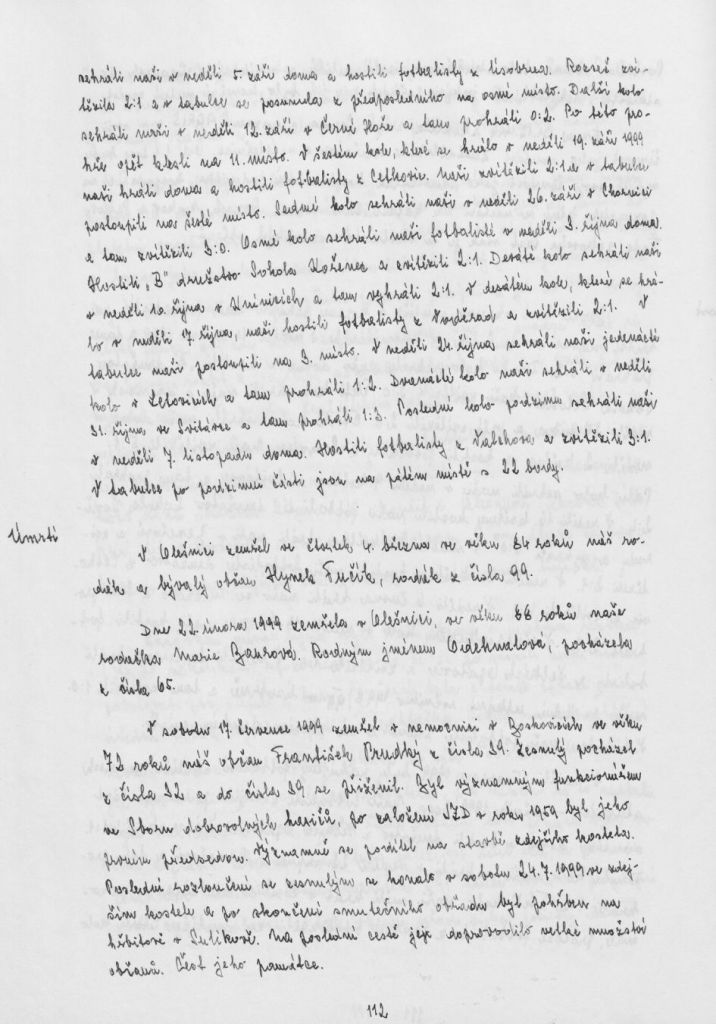 sehráli naši v neděli 5. září doma a hostili fotbalisty z Usobrna. Rozseč zví-
tězila 2:1 a v tabulce se posunula z předposledního na osmé místo. Další kolo
sehráli naši v neděli 12. září v Černé Hoře a tam prohráli 0:2. Po této pro-
hře opět klesli na 11. místo. V šestém kole, které se hrálo v neděli 19. září 1999
naši hráli doma a hostili fotbalisty z Cetkovic. Naši zvítězili 2:1 a v tabulce
postoupili na šesté místo. Sedmé kolo sehráli naši v neděli 26. září v Chornici
a tam zvítězili 3:0. Osmé kolo sehráli naši fotbalisté v neděli 3. října doma.
Hostili „B" družstvo Sokola Kořenec a zvítězili 2:1. Deváté kolo sehráli naši
v neděli 10. října v Knínicích a tam vyhráli 2:1. V desátém kole, které se hrá-
lo v neděli 17. října, naši hostili fotbalisty z Voděrad a zvítězili 2:1. V
tabulce naši postoupili na 3. místo. V neděli 24. října sehráli naši jedenácté
kolo v Letovicích a tam prohráli 1:2. Dvanácté kolo naši sehráli v neděli
31. října ve Svitávce a tam prohráli 1:3. Poslední kolo podzimu sehráli naši
v neděli 7. listopadu doma. Hostili fotbalisty z Valchova a zvítězili 3:1.
V tabulce po podzimní části jsou na pátém místě s 22 body.
Úmrtí
V Olešnici zemřel ve čtvrtek 4. března ve věku 84 roků náš ro-
dák a bývalý občan Hynek Fučík, rodák z čísla 99.
Dne 22. února 1999 zemřela v Olešnici, ve věku 88 roků naše
rodačka Marie Bausová. Rodným jménem Odehnalová, pocházela
z čísla 65.
V sobotu 17. července 1999 zemřel v nemocnici v Boskovicích ve věku
72 roků náš občan František Prudký z čísla 39. Zesnulý pocházel
z čísla 32 a do čísla 39 se přiženil. Byl významným funkcionářem
ve Sboru dobrovolných hasičů, po založení JZD v roku 1959 byl jeho
prvním předsedou. Významně se podílel na stavbě zdejšího kostela.
Poslední rozloučení se zesnulým se konalo v sobotu 24.7.1999 ve zdej-
ším kostele a po skončení smutečního obřadu byl pohřben na
hřbitově v Sulíkově. Na poslední cestě jej doprovodilo velké množství
občanů. Čest jeho památce.
112